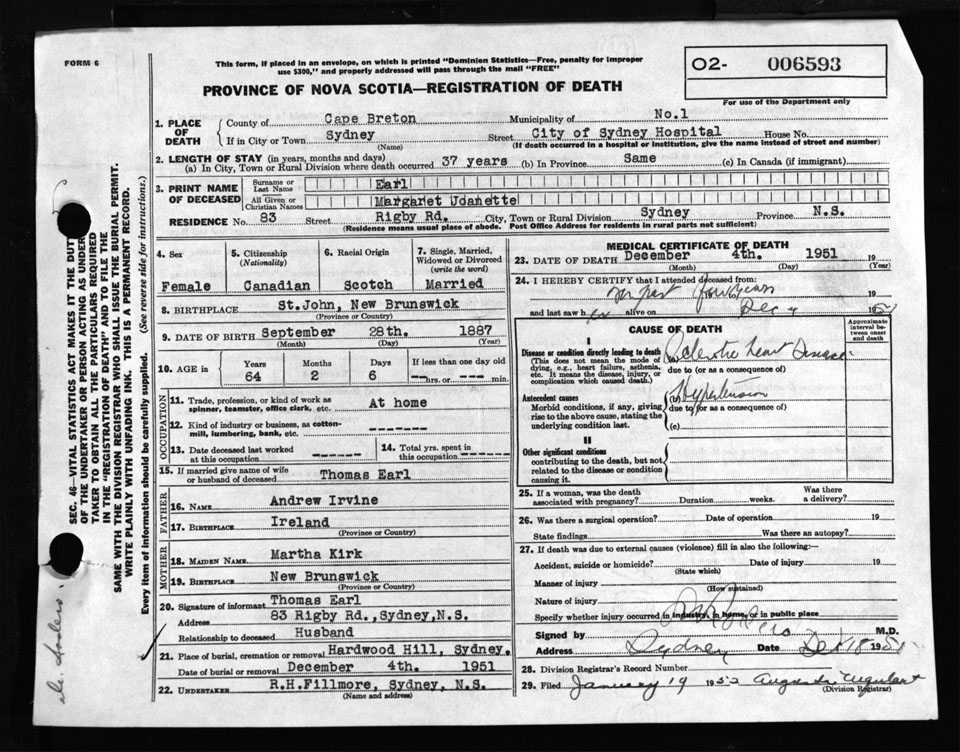 FORM 6
This form, if placed in an envelope, on which is printed "Dominion Statistics—Free, penalty for improper
use $300," and properly addressed will pass through the mail "FREE"
PROVINCE OF NOVA SCOTIA—REGISTRATION OF DEATH
02- 006593
For use of the Department only
SEC. 46—VITAL STATISTICS ACT MAKES IT THE DUTY
OF THE UNDERTAKER OR PERSON ACTING AS UNDER-
TAKER TO OBTAIN ALL THE PARTICULARS REQUIRED
IN THE "REGISTRATION OF DEATH" AND TO FILE THE
SAME WITH THE DIVISION REGISTRAR WHO SHALL ISSUE THE BURIAL PERMIT.
WRITE PLAINLY WITH UNFADING INK. THIS IS A PERMANENT RECORD.
Every item of information should be carefully supplied. (See reverse side for instructions.)
1. PLACE OF DEATH
County of Cape Breton Municipality of No.1
If in City or Town Sydney Street City of Sydney Hospital House No.
(Name) (If death occurred in a hospital or institution, give the name instead of street and number)
2. LENGTH OF STAY (in years, months and days)
(a) In City, Town or Rural Division where death occurred 37 years (b) In Province Same (c) In Canada (if immigrant)
3. PRINT NAME OF DECEASED
Surname or Last Name Earl
All Given or Christian Names Margaret Joanette
RESIDENCE No. 83 Street Rigby Rd. City, Town or Rural Division Sydney Province N.S.
(Residence means usual place of abode. Post Office Address for residents in rural parts not sufficient)
4. Sex
Female
5. Citizenship
(Nationality)
Canadian
6. Racial Origin
Scotch
7. Single, Married,
Widowed or Divorced
(write the word)
Married
8. BIRTHPLACE St.John, New Brunswick
(Province or Country)
9. DATE OF BIRTH September 28th. 1887
(Month) (Day) (Year)
10. AGE in
Years Months Days If less than one day old
64 2 6 hrs. or min.
OCCUPATION
11. Trade, profession, or kind of work as
spinner, teamster, office clerk, etc. At home
12. Kind of industry or business, as cotton-
mill, lumbering, bank, etc.
13. Date deceased last worked
at this occupation
14. Total yrs. spent in
this occupation
15. If married give name of wife
or husband of deceased Thomas Earl
FATHER
16. NAME Andrew Irvine
17. BIRTHPLACE Ireland
(Province or Country)
MOTHER
18. MAIDEN NAME Martha Kirk
19. BIRTHPLACE New Brunswick
(Province or Country)
20. Signature of informant Thomas Earl
Address 83 Rigby Rd.,Sydney,N.S.
Relationship to deceased Husband
21. Place of burial, cremation or removal Hardwood Hill, Sydney.
Date of burial or removal December 4th. 1951
22. UNDERTAKER R.H.Fillmore, Sydney, N.S.
(Name and address)
MEDICAL CERTIFICATE OF DEATH
23. DATE OF DEATH December 4th. 1951 19
(Month) (Day) (Year)
24. I HEREBY CERTIFY that I attended deceased from:
for past four years 19
and last saw her alive on Dec 4 1951
CAUSE OF DEATH
Approximate
interval be-
tween onset
and death
I
Disease or condition directly leading to death (a) heart disease
(This does not mean the mode of
dying, e.g., heart failure, asthenia,
etc. It means the disease, injury, or
complication which caused death.)
due to (or as a consequence of)
Antecedent causes (b) Hypertension
Morbid conditions, if any, giving
rise to the above cause, stating the
underlying condition last.
due to (or as a consequence of)
(c)
II
Other significant conditions
contributing to the death, but not
related to the disease or condition
causing it.
25. If a woman, was the death
associated with pregnancy? Duration weeks. Was there
a delivery?
26. Was there a surgical operation? Date of operation 19
State findings Was there an autopsy?
27. If death was due to external causes (violence) fill in also the following:—
Accident, suicide or homicide? Date of injury 19
(State which)
Manner of injury
(How sustained)
Nature of injury
Specify whether injury occurred in industry, in home, or in public place
Signed by M.D.
Address Sydney Date Dec 18 1951
28. Division Registrar's Record Number
29. Filed January 19 1952
(Division Registrar)